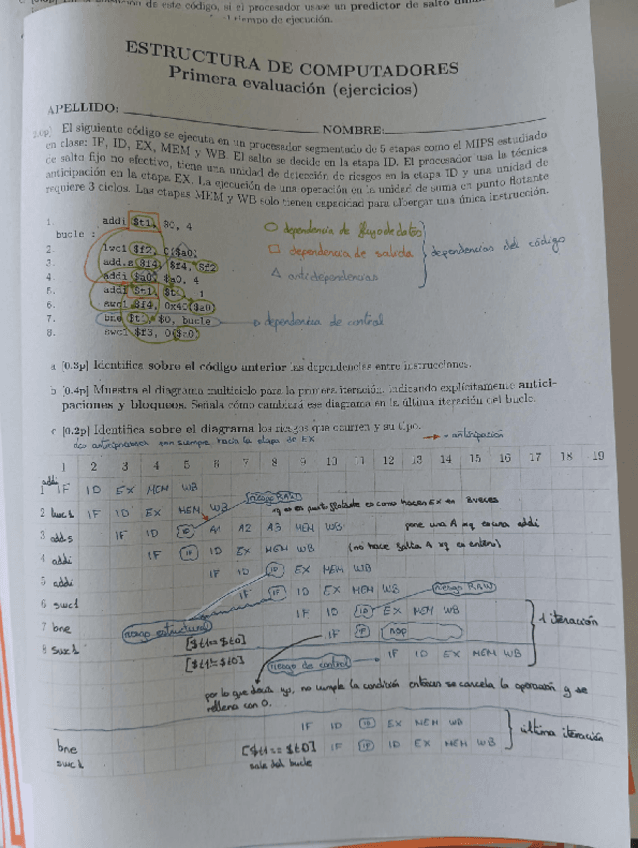 de este código, si el procesador usase un predictor de salto
tiempo de ejecución.
ESTRUCTURA DE COMPUTADORES
Primera evaluación (ejercicios)
APELLIDO:
NOMBRE:
El siguiente código se ejecuta en un procesador segmentado de 5 etapas como el MIPS estudiado
en clase: IF, ID, EX, MEM y WB. El salto se decide en la etapa ID. El procesador usa la técnica
de salto fijo no efectivo, tiene una unidad de detección de riesgos en la etapa ID y una unidad de
anticipación en la etapa EX. La ejecución de una operación en la unidad de suma en punto flotante
requiere 3 ciclos. Las etapas MEM y WB solo tienen capacidad para albergar una única instrucción.
1. addi $t1, $0, 4
bucle :
2. lwc1 $f2, 0($a0)
3. add.s $f4, $f4, $f2
4. addi $a0, $a0, 4
5. addi $t1, $t1, 1
6. swc1 $f4, 0x40($a0)
7. bne $t1, $0, bucle
8. swc1 $f3, 0($a0)
dependencia de flujo de datos
dependencia de salida
antidependencias
dependencias del código
dependencia de control
a [0.3p] Identifica sobre el código anterior las dependencias entre instrucciones.
b [0.4p] Muestra el diagrama multiciclo para la primera iteración, indicando explícitamente antici-
paciones y bloqueos. Señala cómo cambiará ese diagrama en la última iteración del bucle.
c [0.2p] Identifica sobre el diagrama los riesgos que ocurren y su tipo.
las anticipaciones van siempre hacia la etapa de EX
→ = anticipación
1 2 3 4 5 6 7 8 9 10 11 12 13 14 15 16 17 18 19
1 addi IF ID EX MEM WB
riesgo RAW
2 lwc1 IF ID EX MEM WB
xq es en punto flotante es como hacen EX en 3 veces
3 add.s IF ID ID A1 A2 A3 MEM WB
pone una A xq es una addi
4 addi IF IF ID EX MEM WB (no hace falta A xq es entero)
5 addi IF ID ID EX MEM WB
6 swc1 IF IF ID EX MEM WB
riesgo RAW
7 bne IF ID ID EX MEM WB
riesgo estructural
1 iteración
8 swc1 [$t1== $t0] IF IF NOP
[$t1!= $t0] riesgo de control IF ID EX MEM WB
por lo que decía yo, no cumple la condición entonces se cancela la operación y se
rellena con 0.
bne IF ID ID EX MEM WB
última iteración
swc1 [$t1== $t0] IF IF ID EX MEM WB
sale del bucle